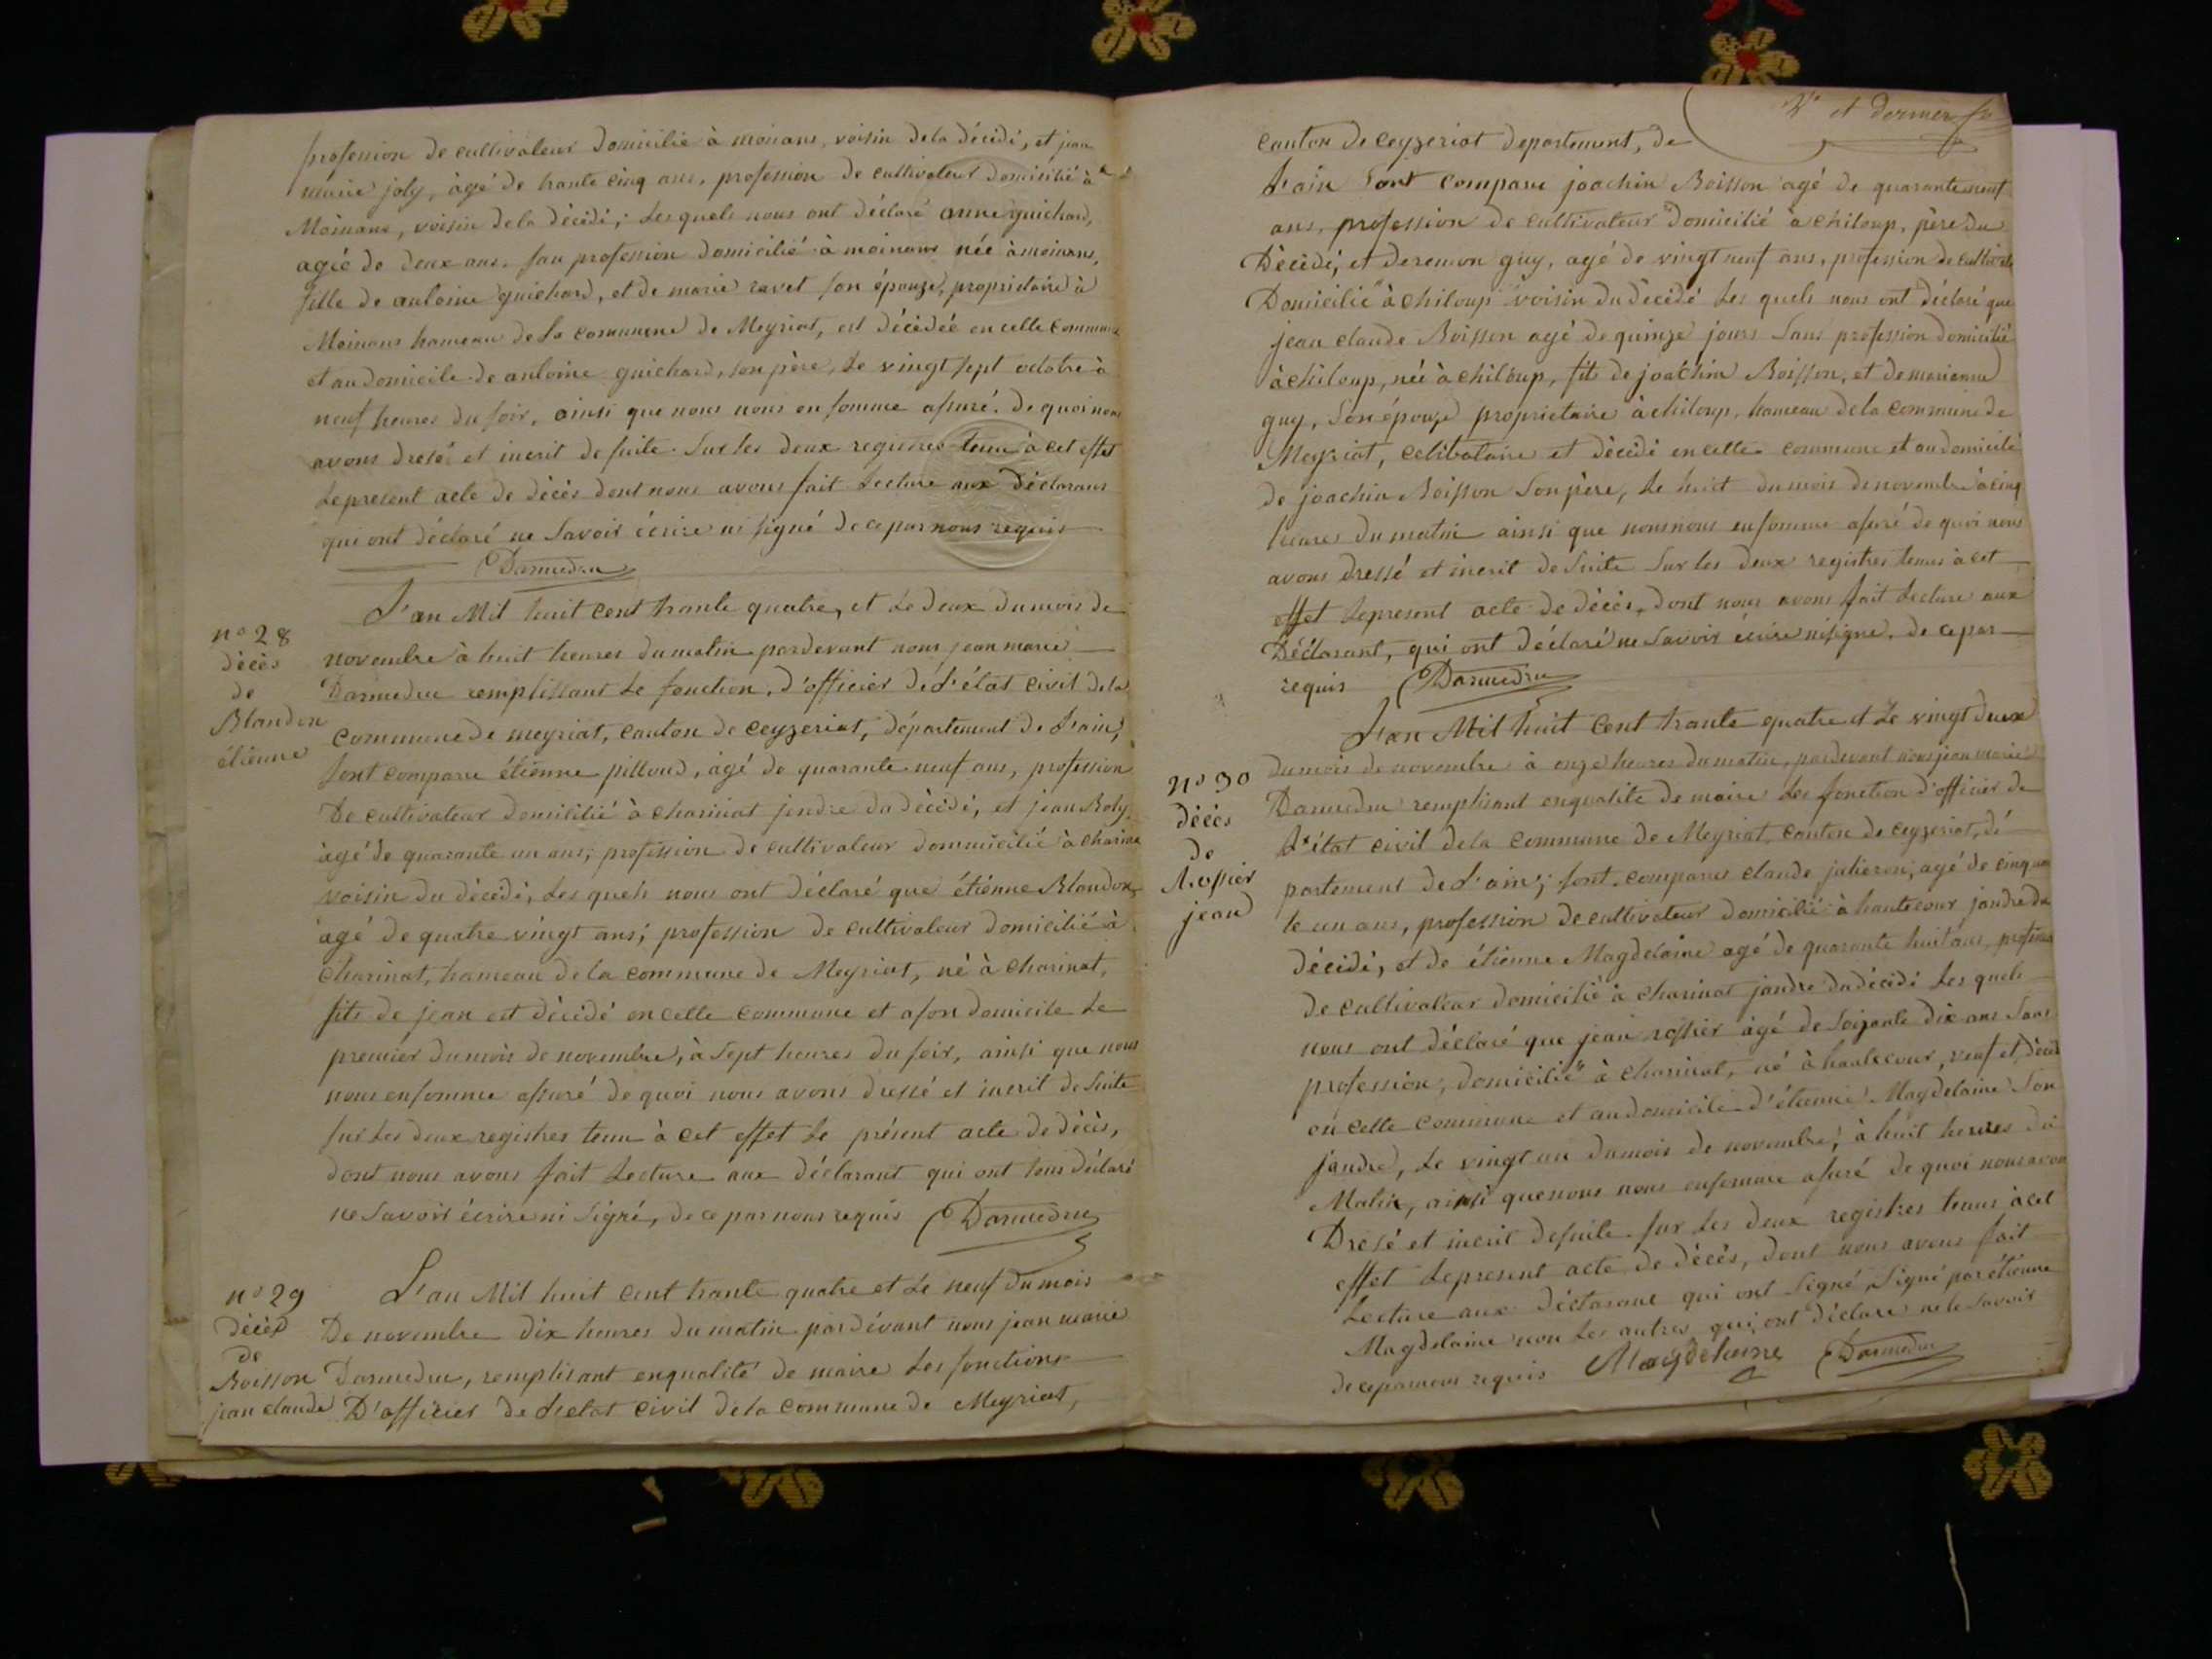 profession de cultivateur domicilié à moinans, voisin de la décédé, et jean
marie joly, âgé de trante cinq ans, profession de cultivateur domicilié à
Moinans, voisin de la décédé; Les quels nous ont déclaré anne guichard,
agée de deux ans. san profession domicilié à moinans née à moinans,
fille de antoine guichard, et de marie ravet son épouze, propriétaire à
Moinans hameau de La commune de Meyriat, est décédée en cette commune
et au domicile de antoine guichard, son père, Le vingt sept octobre à
neuf heures du soir, ainsi que nous nous en somme assuré. De quoi nous
avons dressé et incrit de suite Sur les deux registres tenu à cet effet
Le present acte de décès dont nous avons fait Lecture aux déclarans
qui ont déclaré ne Savoir écrire ni signé de ce par nous requis
Darmedru
n° 28
décès
de
Blandon
étienne
L'an Mil huit cent trante quatre, et Le deux du mois de
novembre à huit heures du matin pardevant nous jean marie
Darmedru remplissant Le fonction, d'officier de L'état civil de la
commune de meyriat, canton de ceyzeriat, département de L'ain,
sont comparu étienne pilloud, âgé de quarante neuf ans, profession
De cultivateur domicilié à charinat jendre du décédé, et jean Boly
âgé de quarante un ans, profession de cultivateur dommicilié à charina
voisin du décédé, Les quels nous ont déclaré que étienne Blandon,
âgé de quatre vingt ans; profession de cultivateur domicilié à
charinat, hameau de la commune de Meyriat, né à charinat,
fils de jean est décédé en cette commune et a son domicile Le
premier du mois de novembre, à Sept heures du soir, ainsi que nous
nous en somme assuré de quoi nous avons dressé et incrit de Suite
sur Les deux registres tenu à cet effet Le présent acte de décès,
dont nous avons fait Lecture aux déclarant qui ont tous déclaré
ne Savoir écrire ni Signé, de ce par nous requis Darmedru
n° 29
décès
de
Boisson
jean claude
L'an Mil huit cent trante quatre et Le neuf du mois
De novembre dix heures du matin pardévant nous jean marie
Darmedru, remplisant en qualité de maire Les fonctions
D'officier de L'état civil de la commune de Meyriat,
et dernier
canton de ceyzeriat departement, de
L'ain Sont comparu joachin Boisson agé de quarante neuf
ans, profession de cultivateur domicilié à chiloup, père du
Décédé, et de guy, agé de vingt neuf ans, profession de
Domicilié à chiloup voisin du décédé Les quels nous ont déclaré que
jean claude Boisson agé de quinze jours Sans profession domicilié
à chiloup, née à chiloup, fils de joachin Boisson, et de marianne
guy, Son épouze propriétaire à chiloup, hameau de la commune de
Meyriat, celibataire et décédé en cette commune et au domicile
de joachin Boisson Son père, Le huit du mois de novembre à cinq
heures du matin ainsi que nous nous en somme assuré de quoi nous
avons dressé et incrit de Suite Sur les deux registres tenus à cet
effet Le present acte de décès, dont nous avons fait Lecture aux
Déclarant, qui ont déclaré ne Savoir écrire ni signé. de ce par
requis Darmedru
n° 30
décès
de
Rossier
jean
L'an Mil huit Cent trante quatre et Le vingt deux
du mois de novembre à onze heures du matin, pardevant nous jean marie
Darmedru remplisant en qualité de maire Les fonction d'officier de
L'état civil de la commune de Meyriat, canton de ceyzeriat, dé
partement de L'ain; sont comparus claude, agé de cinquan
te un ans, profession de cultivateur domicilié à hautecour jandre du
décédé, et de étienne Magdelaine agé de quarante huit ans, profession
de cultivateur domicilié à charinat jandre du décédé Les quels
nous ont déclaré que jean rossier âgé de Soizante dix ans Sans
profession, domicilié à charinat, né à hautecour, veuf et décédé
en cette commune et au domicile d'étienne Magdelaine Son
jandre, Le vingt un du mois de novembre; à huit heures du
Matin, ainsi que nous nous en somme assuré de quoi nous avon
Dresé et incrit de suite sur Les deux registres tenus à cet
effet Le present acte de décès, dont nous avons fait
Lecture aux déclarant qui ont Signé, Signé par étienne
Magdelaine non Les autres qui ont déclaré ne le Savoir
de ce par nous requis Magdelaine Darmedru